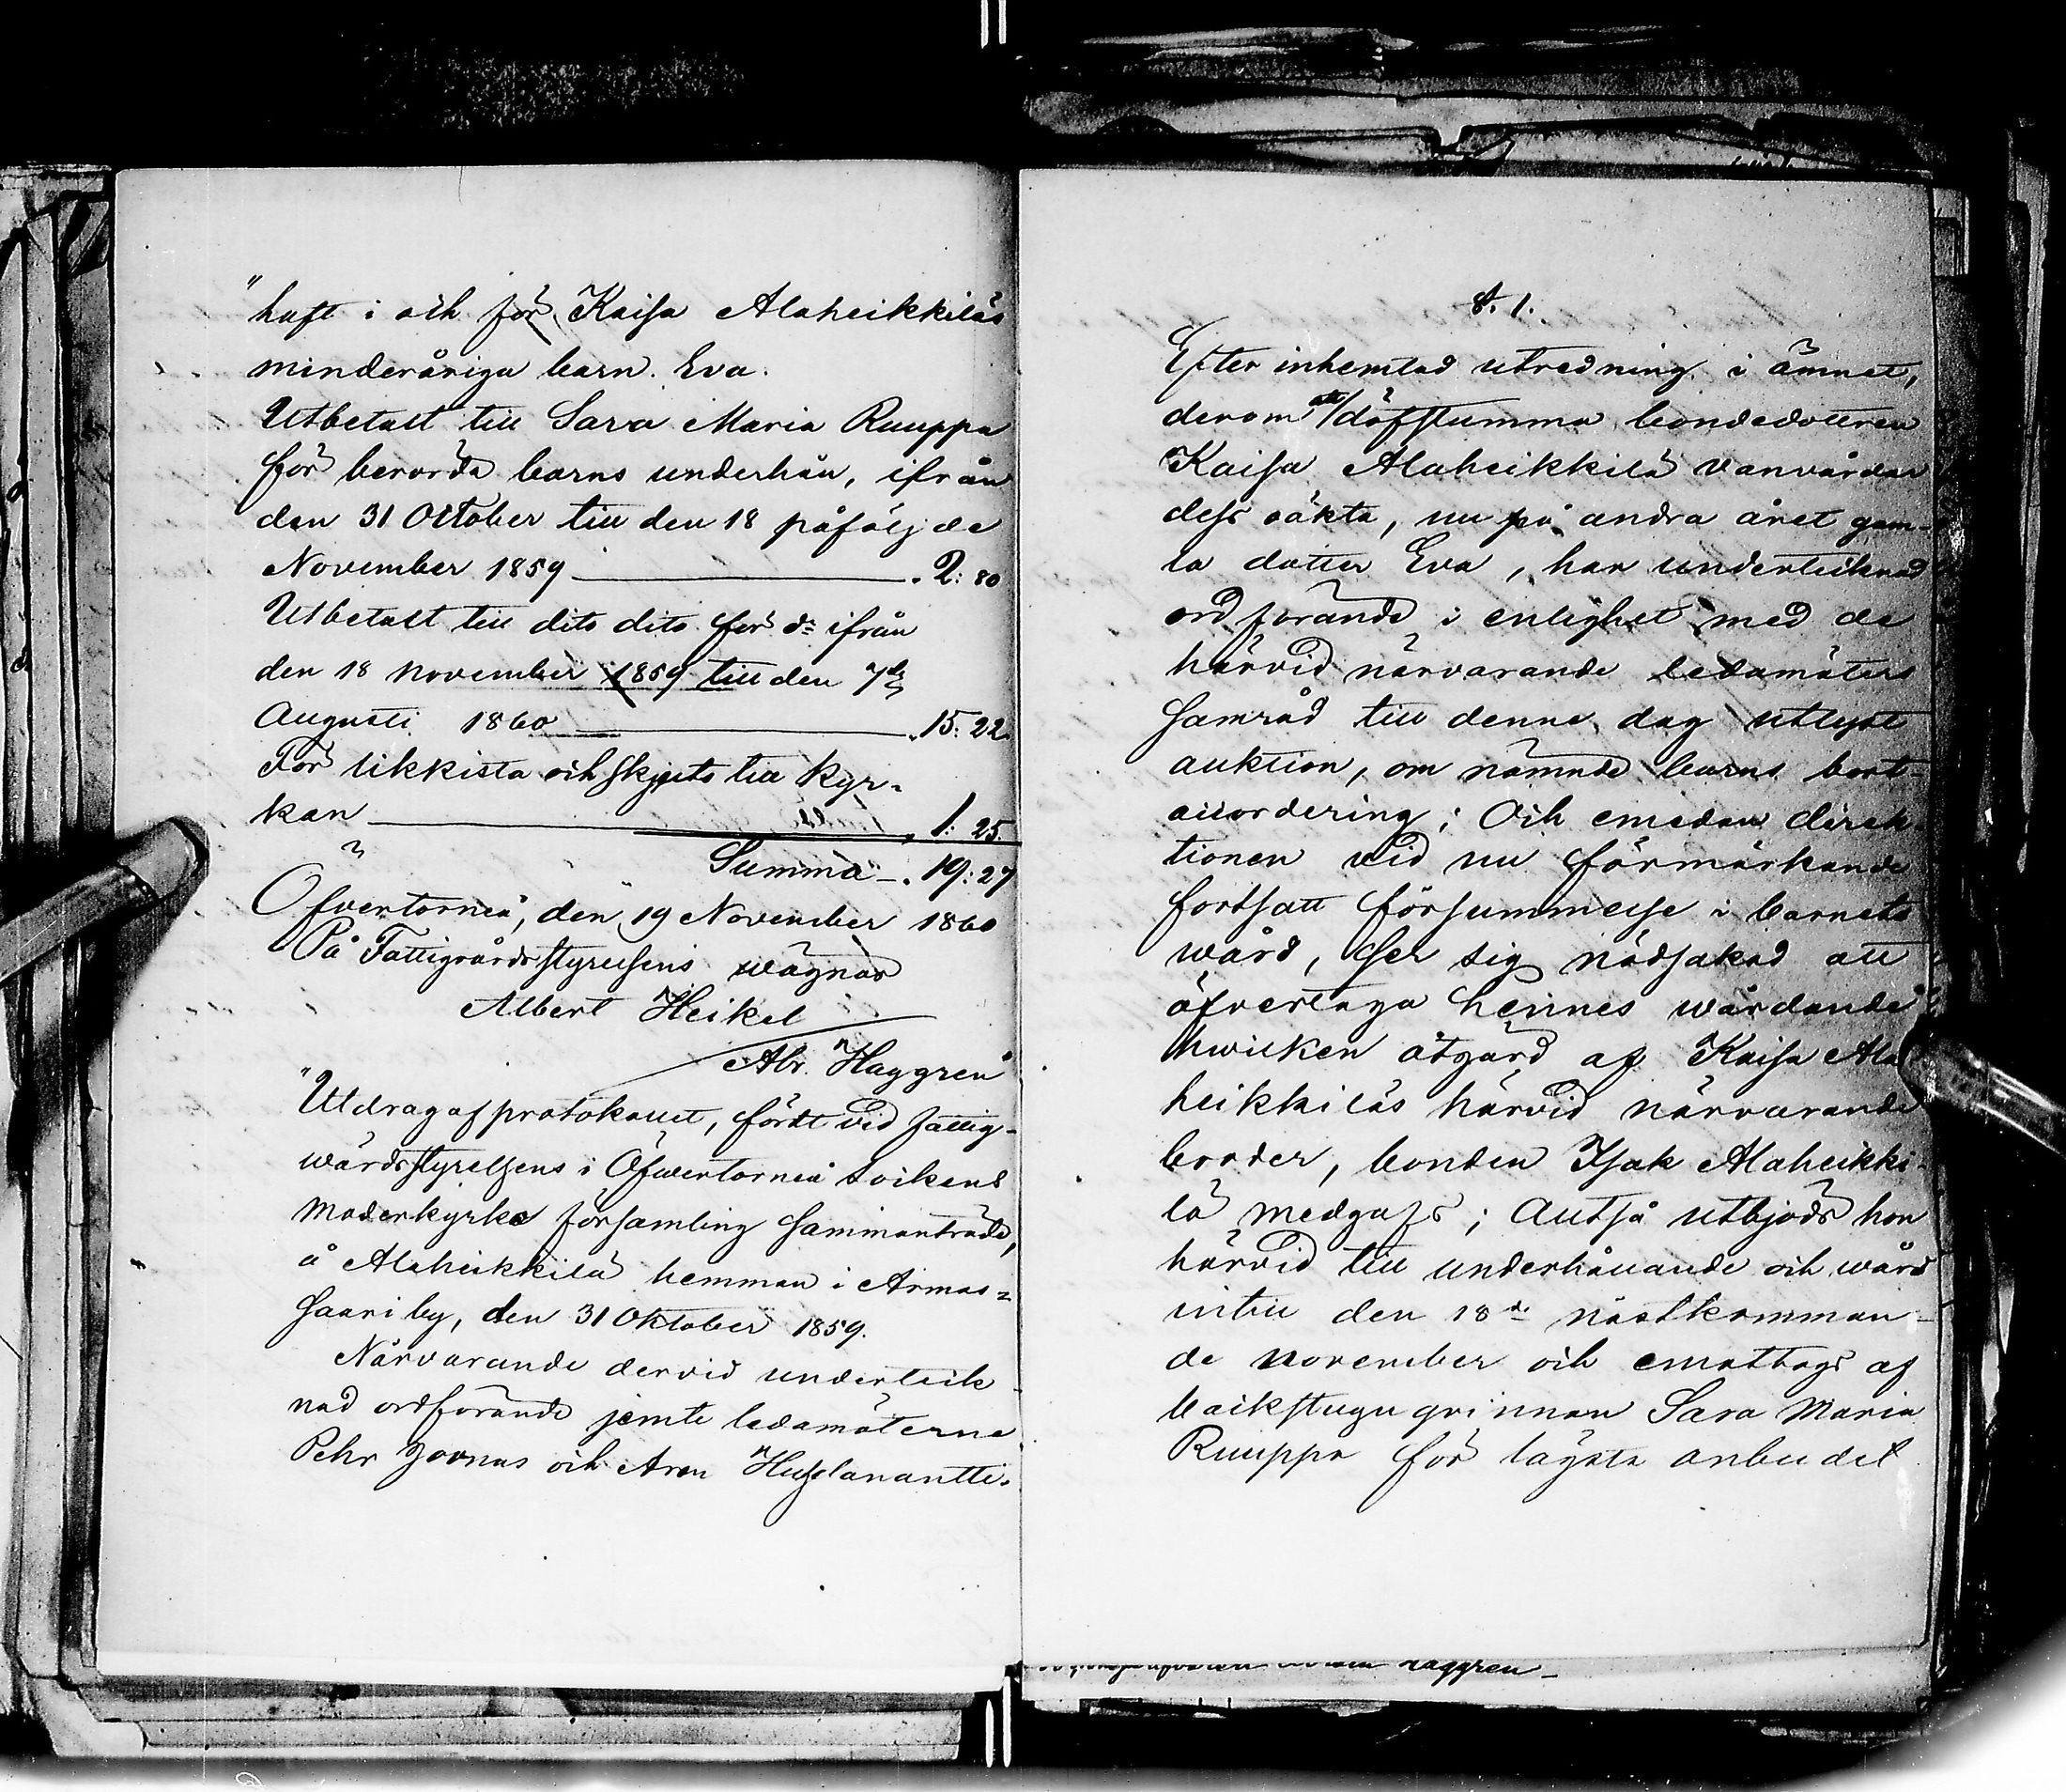 "haft i och för Kaisa Alaheikkiläs
minderåriga barn Eva.
Utbetalt till Sara Maria Ruuppa
för berörda barns underhåll, ifrån
den 31 October till den 18 påföljde
November 1859 — „ 2: 80
Utbetalt till dito dito för do ifrån
den 18 November 1859 till den 7de
Augusti 1860 — „ 15: 22
För likkista och skjuts till kyr-
kan — „ 1: 25
Summa — „ 19: 27
Öfvertorneå, den 19 November 1860
På Fattigvårdsstyrelsens wägnar
Albert Heikel
/Abr. Häggren"
"Utdrag af protokollet, fördt vid fattig-
wårdsstyrelsens i Öfwertorneå Sockens
Moderkyrko församling sammanträde,
å Alaheikkilä hemman i Armas-
saari by, den 31 Oktober 1859.
Närvarande dervid underteck-
nad ordförande jemte ledamöterne
Pehr Joonas och Aron
§. 1.
Efter inhemtad utredning i ämnet,
derom att döfstumma bondedottren
Kaisa Alaheikkilä vanvårdar
dess oäkta, nu på andra året gam-
la dotter Eva, har undertecknad
ordförande i enlighet med de
härvid närvarande ledamöters
samråd till denna dag utlyst
auktion, om nämnde barns bort
ackordering; Och emedan direk-
tionen vid nu förmärkande
fortsatt försummelse i barnets
wård, ser sig nödsakad att
öfvertaga hennes wårdande
hwilken åtgärd af Kaisa Ala
heikkiläs härvid närvarande
broder, bonden Isak Alaheikki-
lä medgafs; Alltså utbjöds hon
härvid till underhållande och wård
intill den 18de nästkomman-
de november och emottogs af
backstugu qvinnan Sara Maria
Ruuppa för lägsta anbudet
Häggren